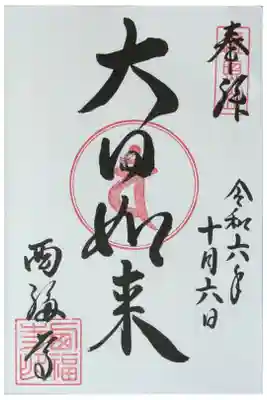 奉拝
令和六年
十月六日
大日如来
西福寺